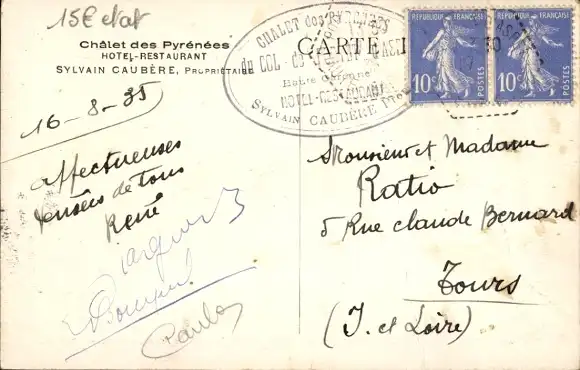 15E
Châlet des Pyrénées
HOTEL-RESTAURANT
SYLVAIN CAUBÈRE, PROPRIÉTAIRE
CHALET des PYRÉNÉES
du COL
HOTEL-RESTAURANT
SYLVAIN CAUBÈRE
CARTE
RÉPUBLIQUE FRANÇAISE
10c
POSTES
RÉPUBLIQUE FRANÇAISE
10c
POSTES
16-8-35
affectueuses
pensées de tous
René
Paulo
Monsieur et Madame
Ratio
5 Rue claude Bernard
Tours
(I. et Loire)